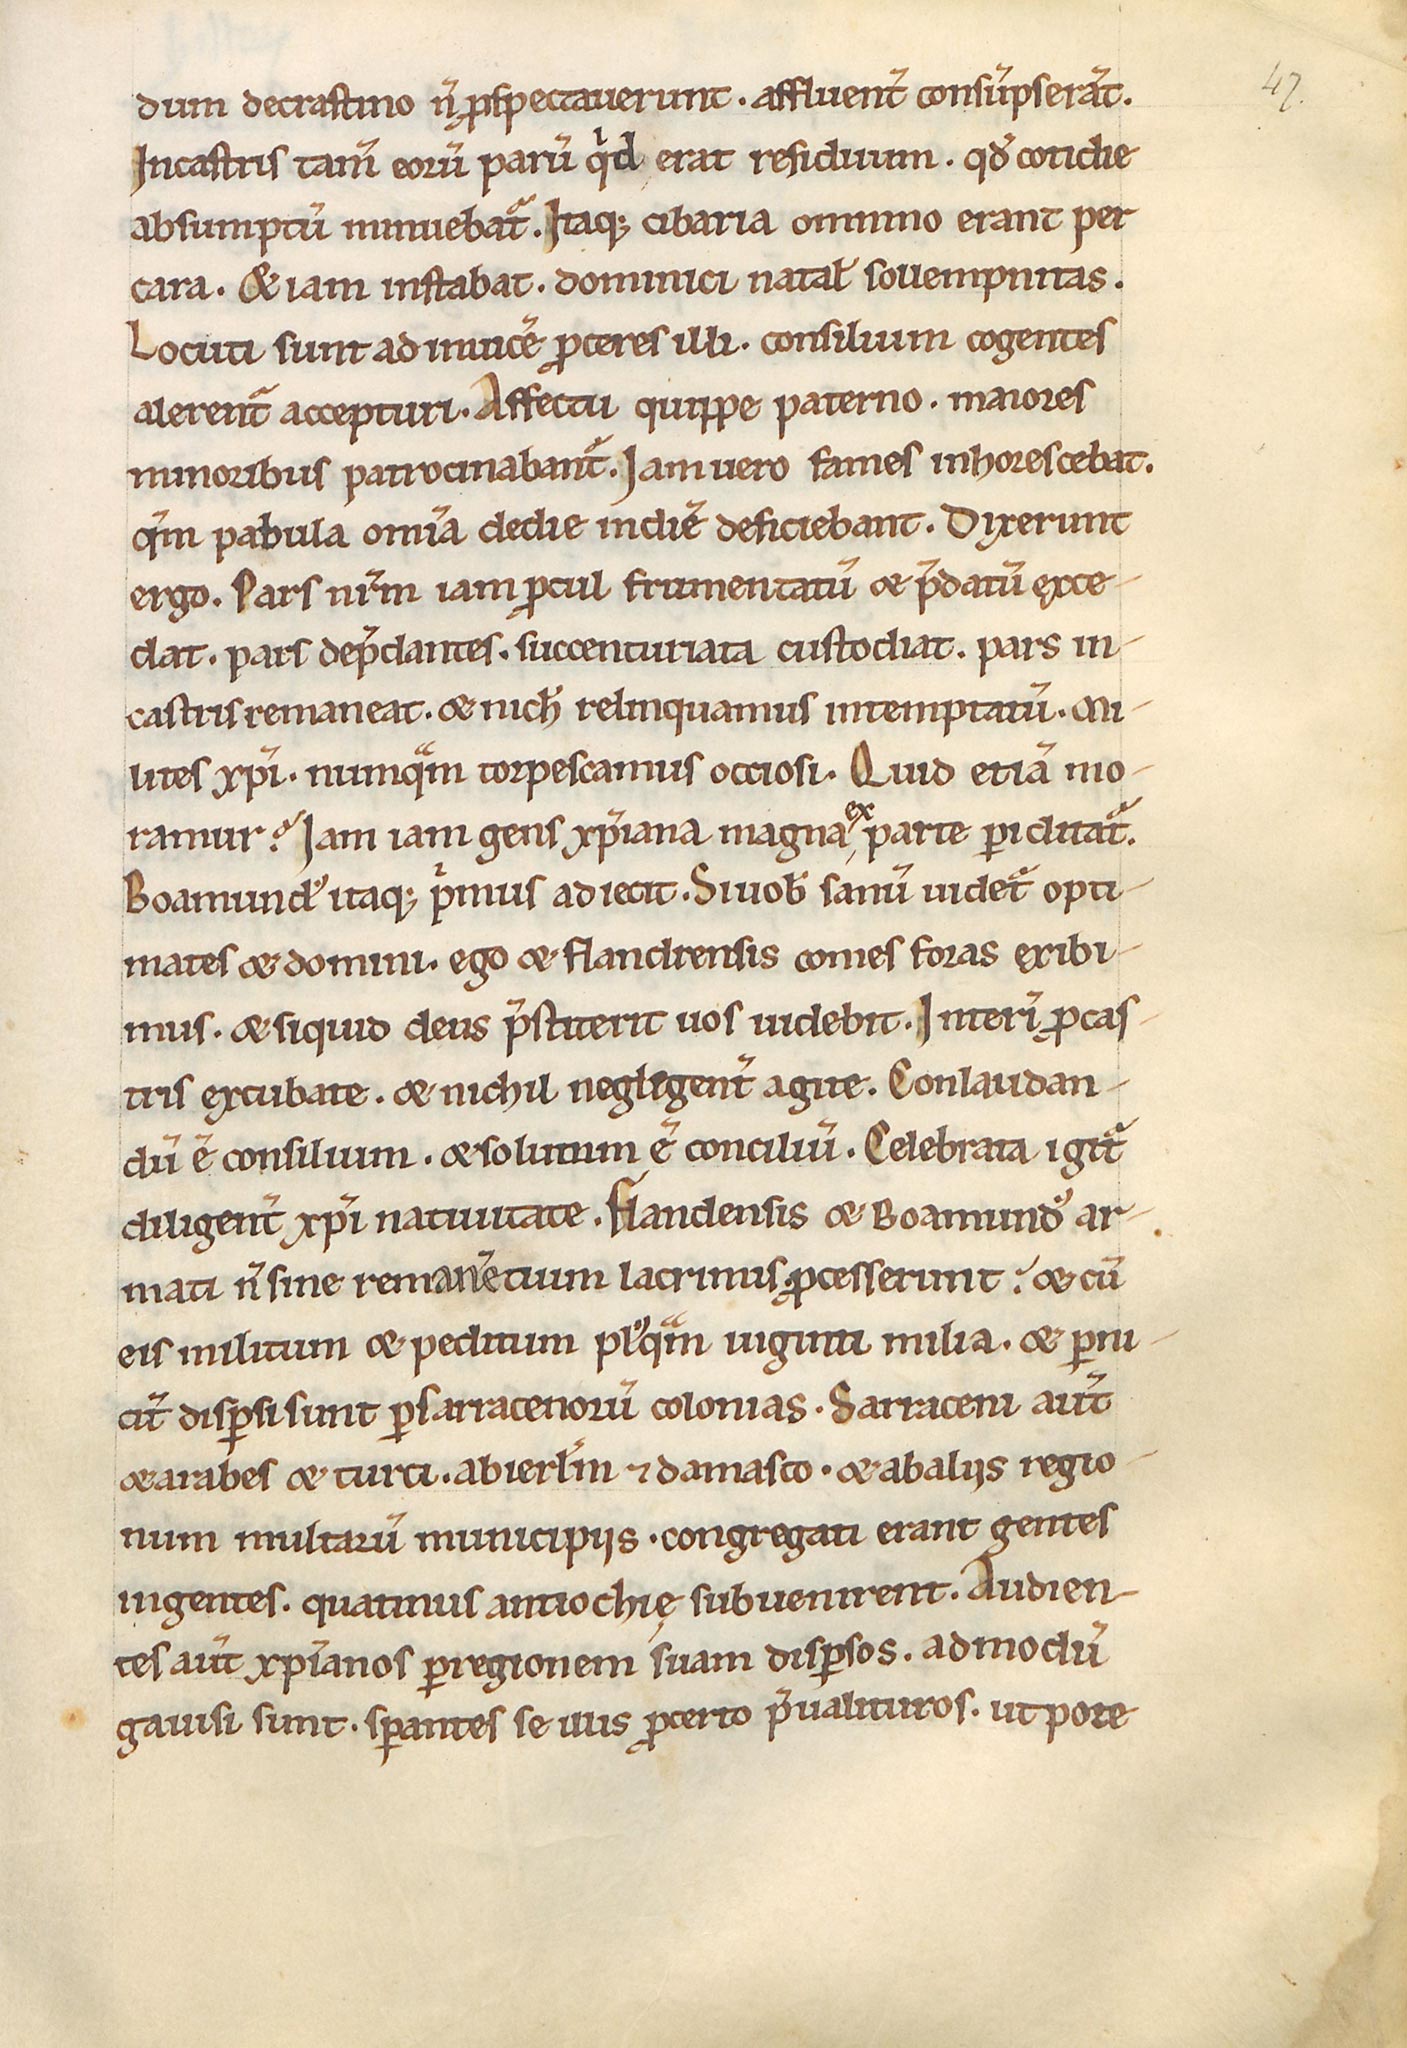 47.
dum decrastino n̄ ꝓspectauerunt. affluent̄ consūpserāt.
Incastris tam̄ eorū parū qͥd erat residuum. qđ cotidie
absumptū minuebat᷑. Itaq; cibaria omnino erant per
cara. & iam instabat. dominici natał sollempnitas.
Locuti sunt ad inuicē ꝓceres illi. consilium cogentes
alerent᷑ accepturi. Affectu quippe paterno. maiores
minoribus patrocinabant᷑. Iam uero fames inhorescebat.
qm̄ pabula om̄ia dedie indiē deficiebant. Dixerunt
ergo. Pars nr̄m iam ꝓcul frumentatū & p̄datū exce-
dat. pars dep̄dantes. succenturiata custodiat. pars in-
castris remaneat. & nich̄ relinquamus intemptatū. Mi-
lites xp̄i. numqᵃm torpescamus occiosi. Quid etiā mo-
ramur? Iam iam gens xp̄iana magna ex parte ꝑiclitat᷑.
Boamundꝰ itaq; pͥmus adiecit. Si uob̄ sanū uidet᷑ opti-
mates & domini. ego & flandrensis comes foras exibi-
mus. & siquid deus p̄stiterit uos uidebit. Interī ꝓcas-
tris excubate. & nichil negligent̄ agite. Conlaudan-
dū ē consilium. & solutum ē conciliū. Celebrata igit᷑
diligent̄ xp̄i natiuitate. Flandensis & Boamundꝰ ar-
mati n̄ sine remanētium lacrimis ꝓcesserunt? & cū
eis militum & peditum plꝰqᵃm uiginti milia. & ꝑni-
cit̄ disꝑsi sunt ꝑ sarracenorū colonias. Sarraceni aut̄
& arabes & turci. abierl̄m ⁊ damasco. & abaliis regio-
num multarū municipiis. congregati erant gentes
ingentes. quatinus antiochię subuenirent. Audien-
tes aut̄ xp̄ianos ꝑ regionem suam disꝑsos. admodū
gauisi sunt. sꝑantes se illis ꝓcerto p̄ualituros. utpote